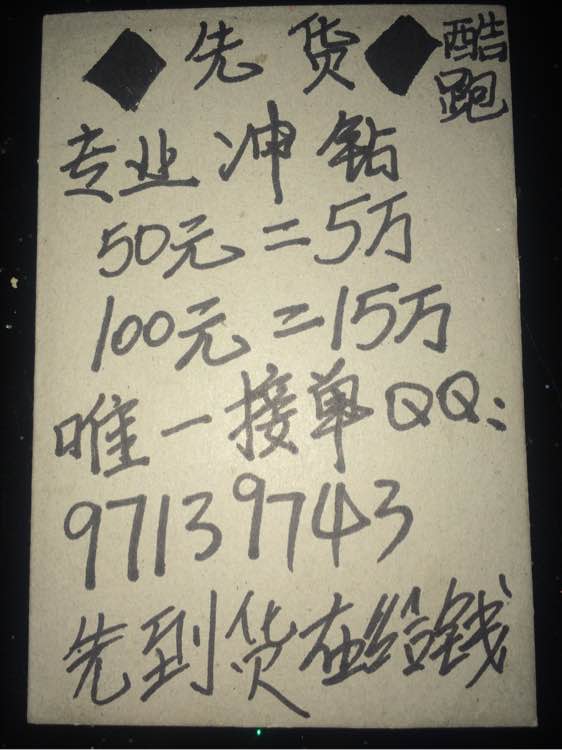 ◆先货◆酷跑
专业冲钻
50元=5万
100元=15万
唯一接单QQ:
97139743
先到货在给钱